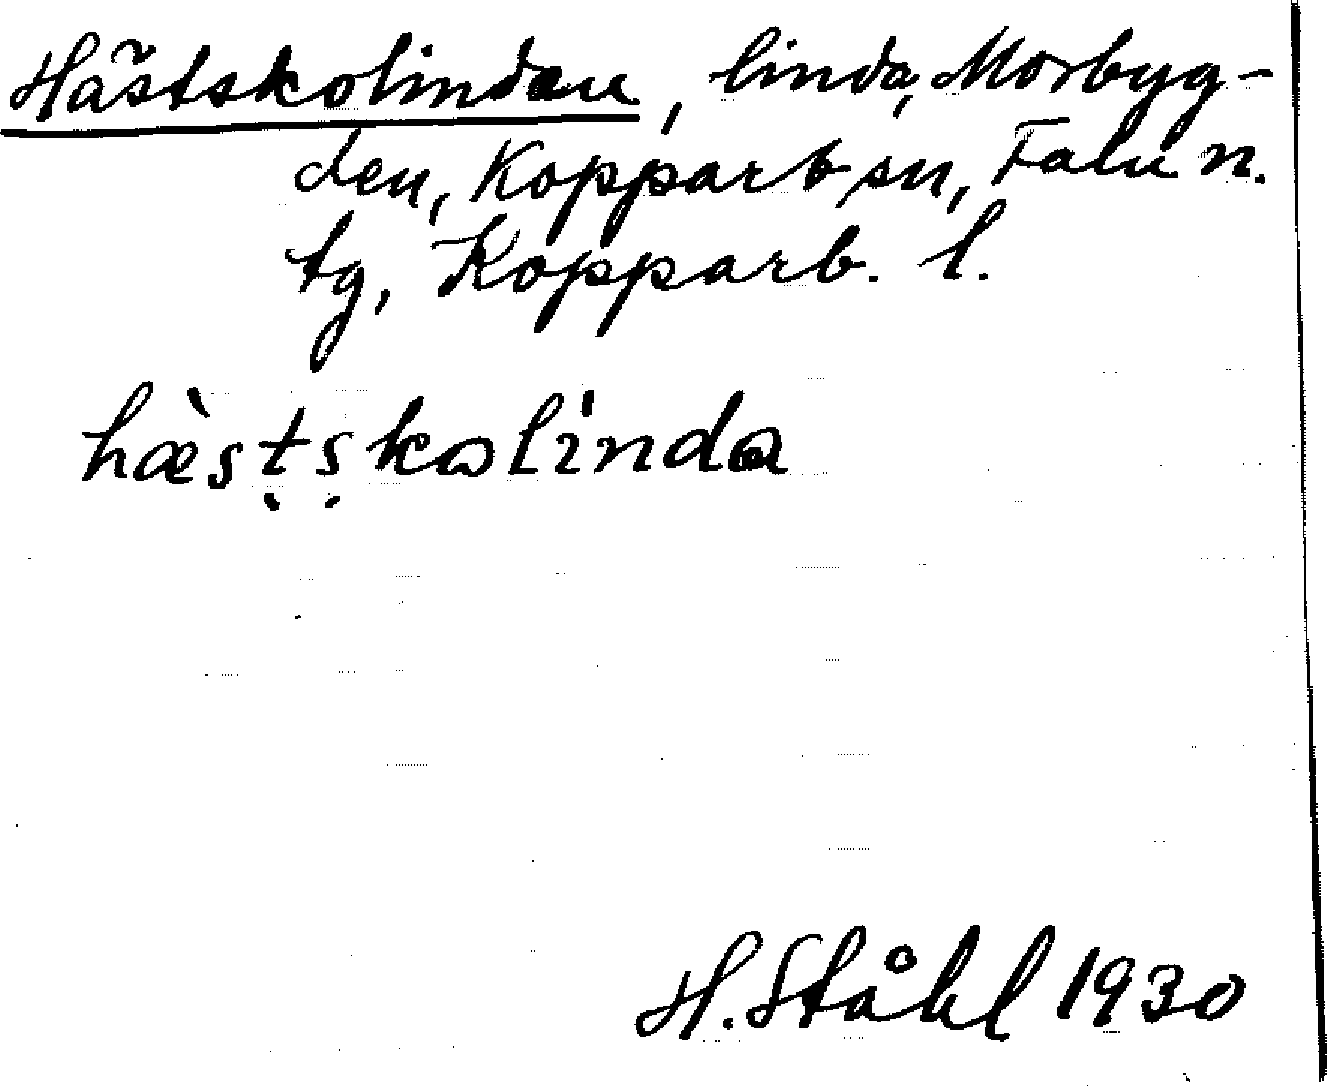 Hästskolindan, linda, Morbyg-
den, Kopparb sn, Falu n.
tg, Kopparb. l.
hæ̀sṭṣkolinda
H. Ståhl 1930